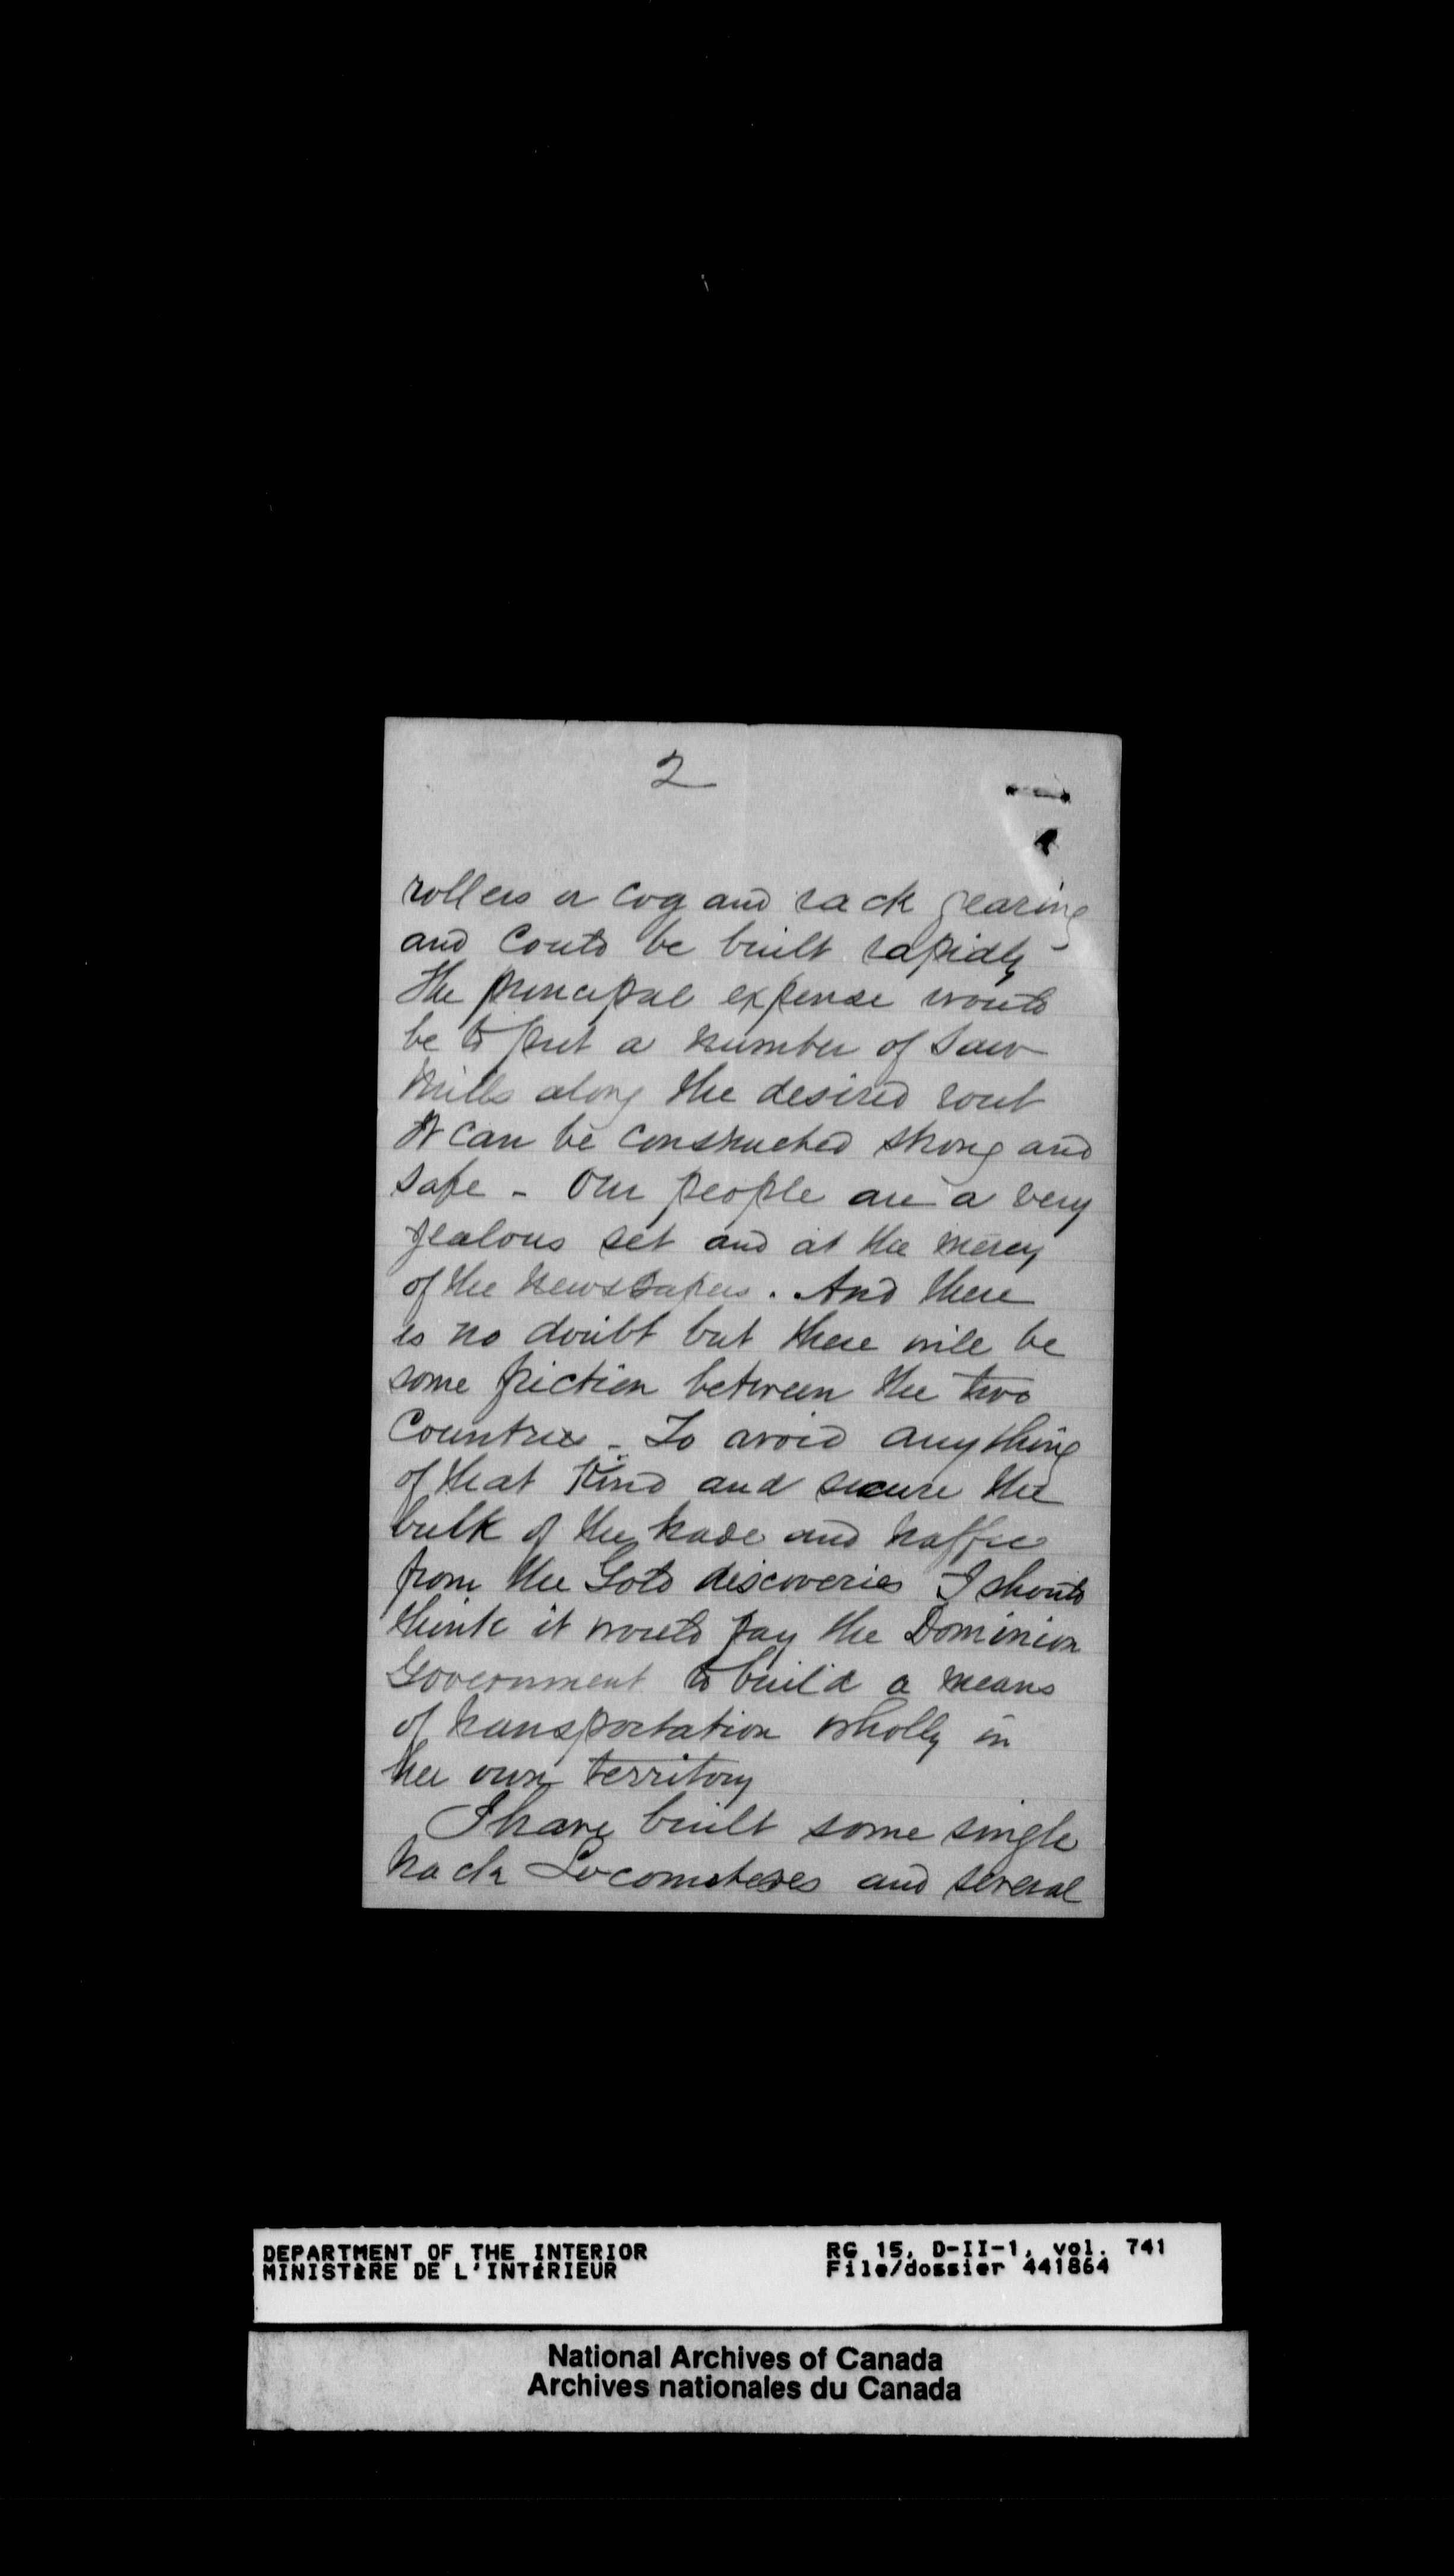 2
rollers or cog and rack gearing
and could be built rapidly
the principal expense would
be to put a number of saw
mills along the desired rout
It can be constructed strong and
safe - Our people are a very
jealous set and at the mercy
of the newspapers. And there
is no doubt but there will be
some friction between the two
Countries - To avoid anything
of that kind and secure the
bulk of the trade and traffic
from the Gold discoveries I should
think it would pay the Dominion
Government to build a means
of transportation wholly in
her own territory
I have built some single
track Locomotives and several
DEPARTMENT OF THE INTERIOR RG 15, D-II-1, vol. 741
MINISTÈRE DE L'INTÉRIEUR File/dossier 441864
National Archives of Canada
Archives nationales du Canada